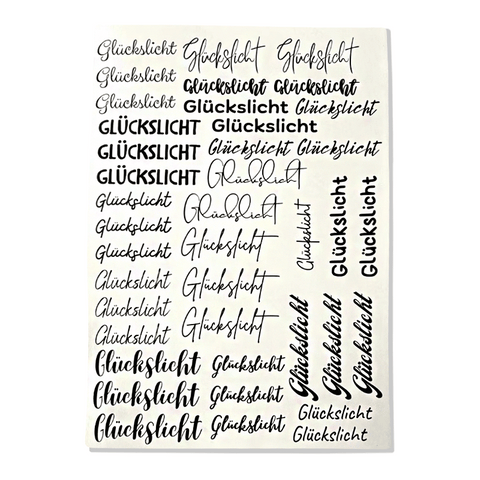 Glückslicht Glückslicht Glückslicht
Glückslicht Glückslicht Glückslicht
Glückslicht Glückslicht Glückslicht
GLÜCKSLICHT Glückslicht
GLÜCKSLICHT Glückslicht Glückslicht
GLÜCKSLICHT Glückslicht
Glückslicht Glückslicht
Glückslicht
Glückslicht Glückslicht
Glückslicht Glückslicht
Glückslicht
Glückslicht Glückslicht
Glückslicht Glückslicht
Glückslicht Glückslicht
Glückslicht Glückslicht
Glückslicht
Glückslicht
Glückslicht
Glückslicht
Glückslicht
Glückslicht
Glückslicht
Glückslicht